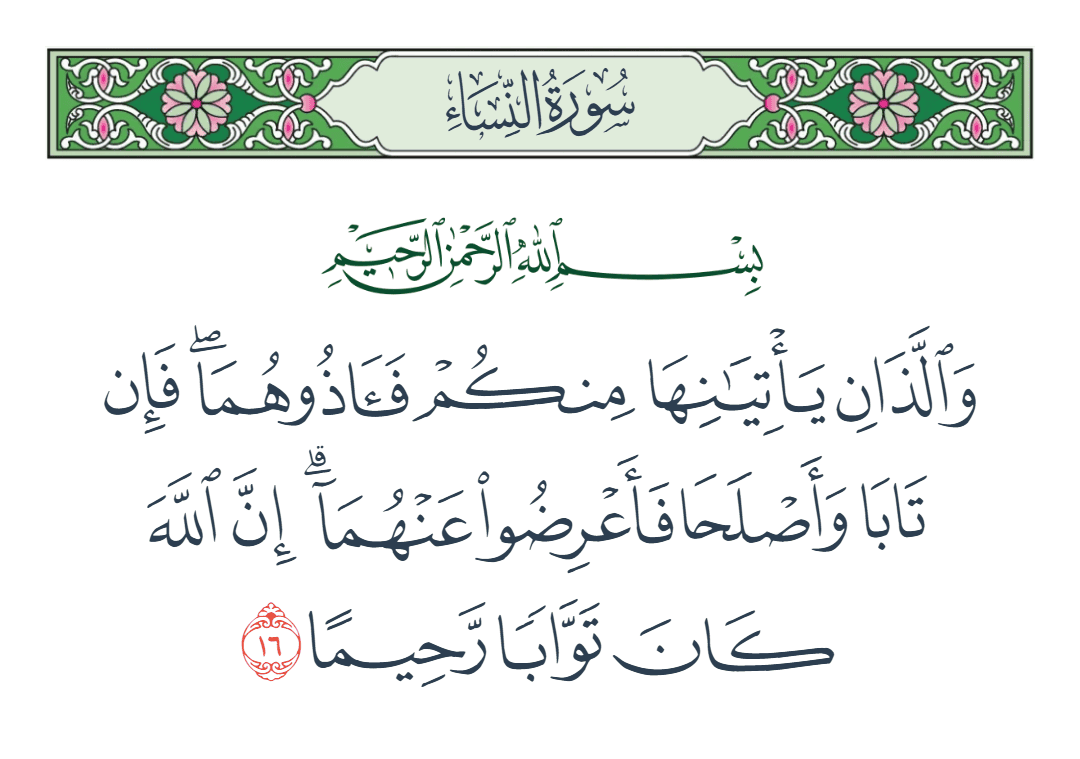 سُورَةُ النِّسَاءِ
بِسْمِ ٱللَّهِ ٱلرَّحْمَٰنِ ٱلرَّحِيمِ
وَٱلَّذَانِ يَأْتِيَٰنِهَا مِنكُمْ فَـَٔاذُوهُمَا ۖ فَإِن
تَابَا وَأَصْلَحَا فَأَعْرِضُوا۟ عَنْهُمَآ ۗ إِنَّ ٱللَّهَ
كَانَ تَوَّابًا رَّحِيمًا ١٦